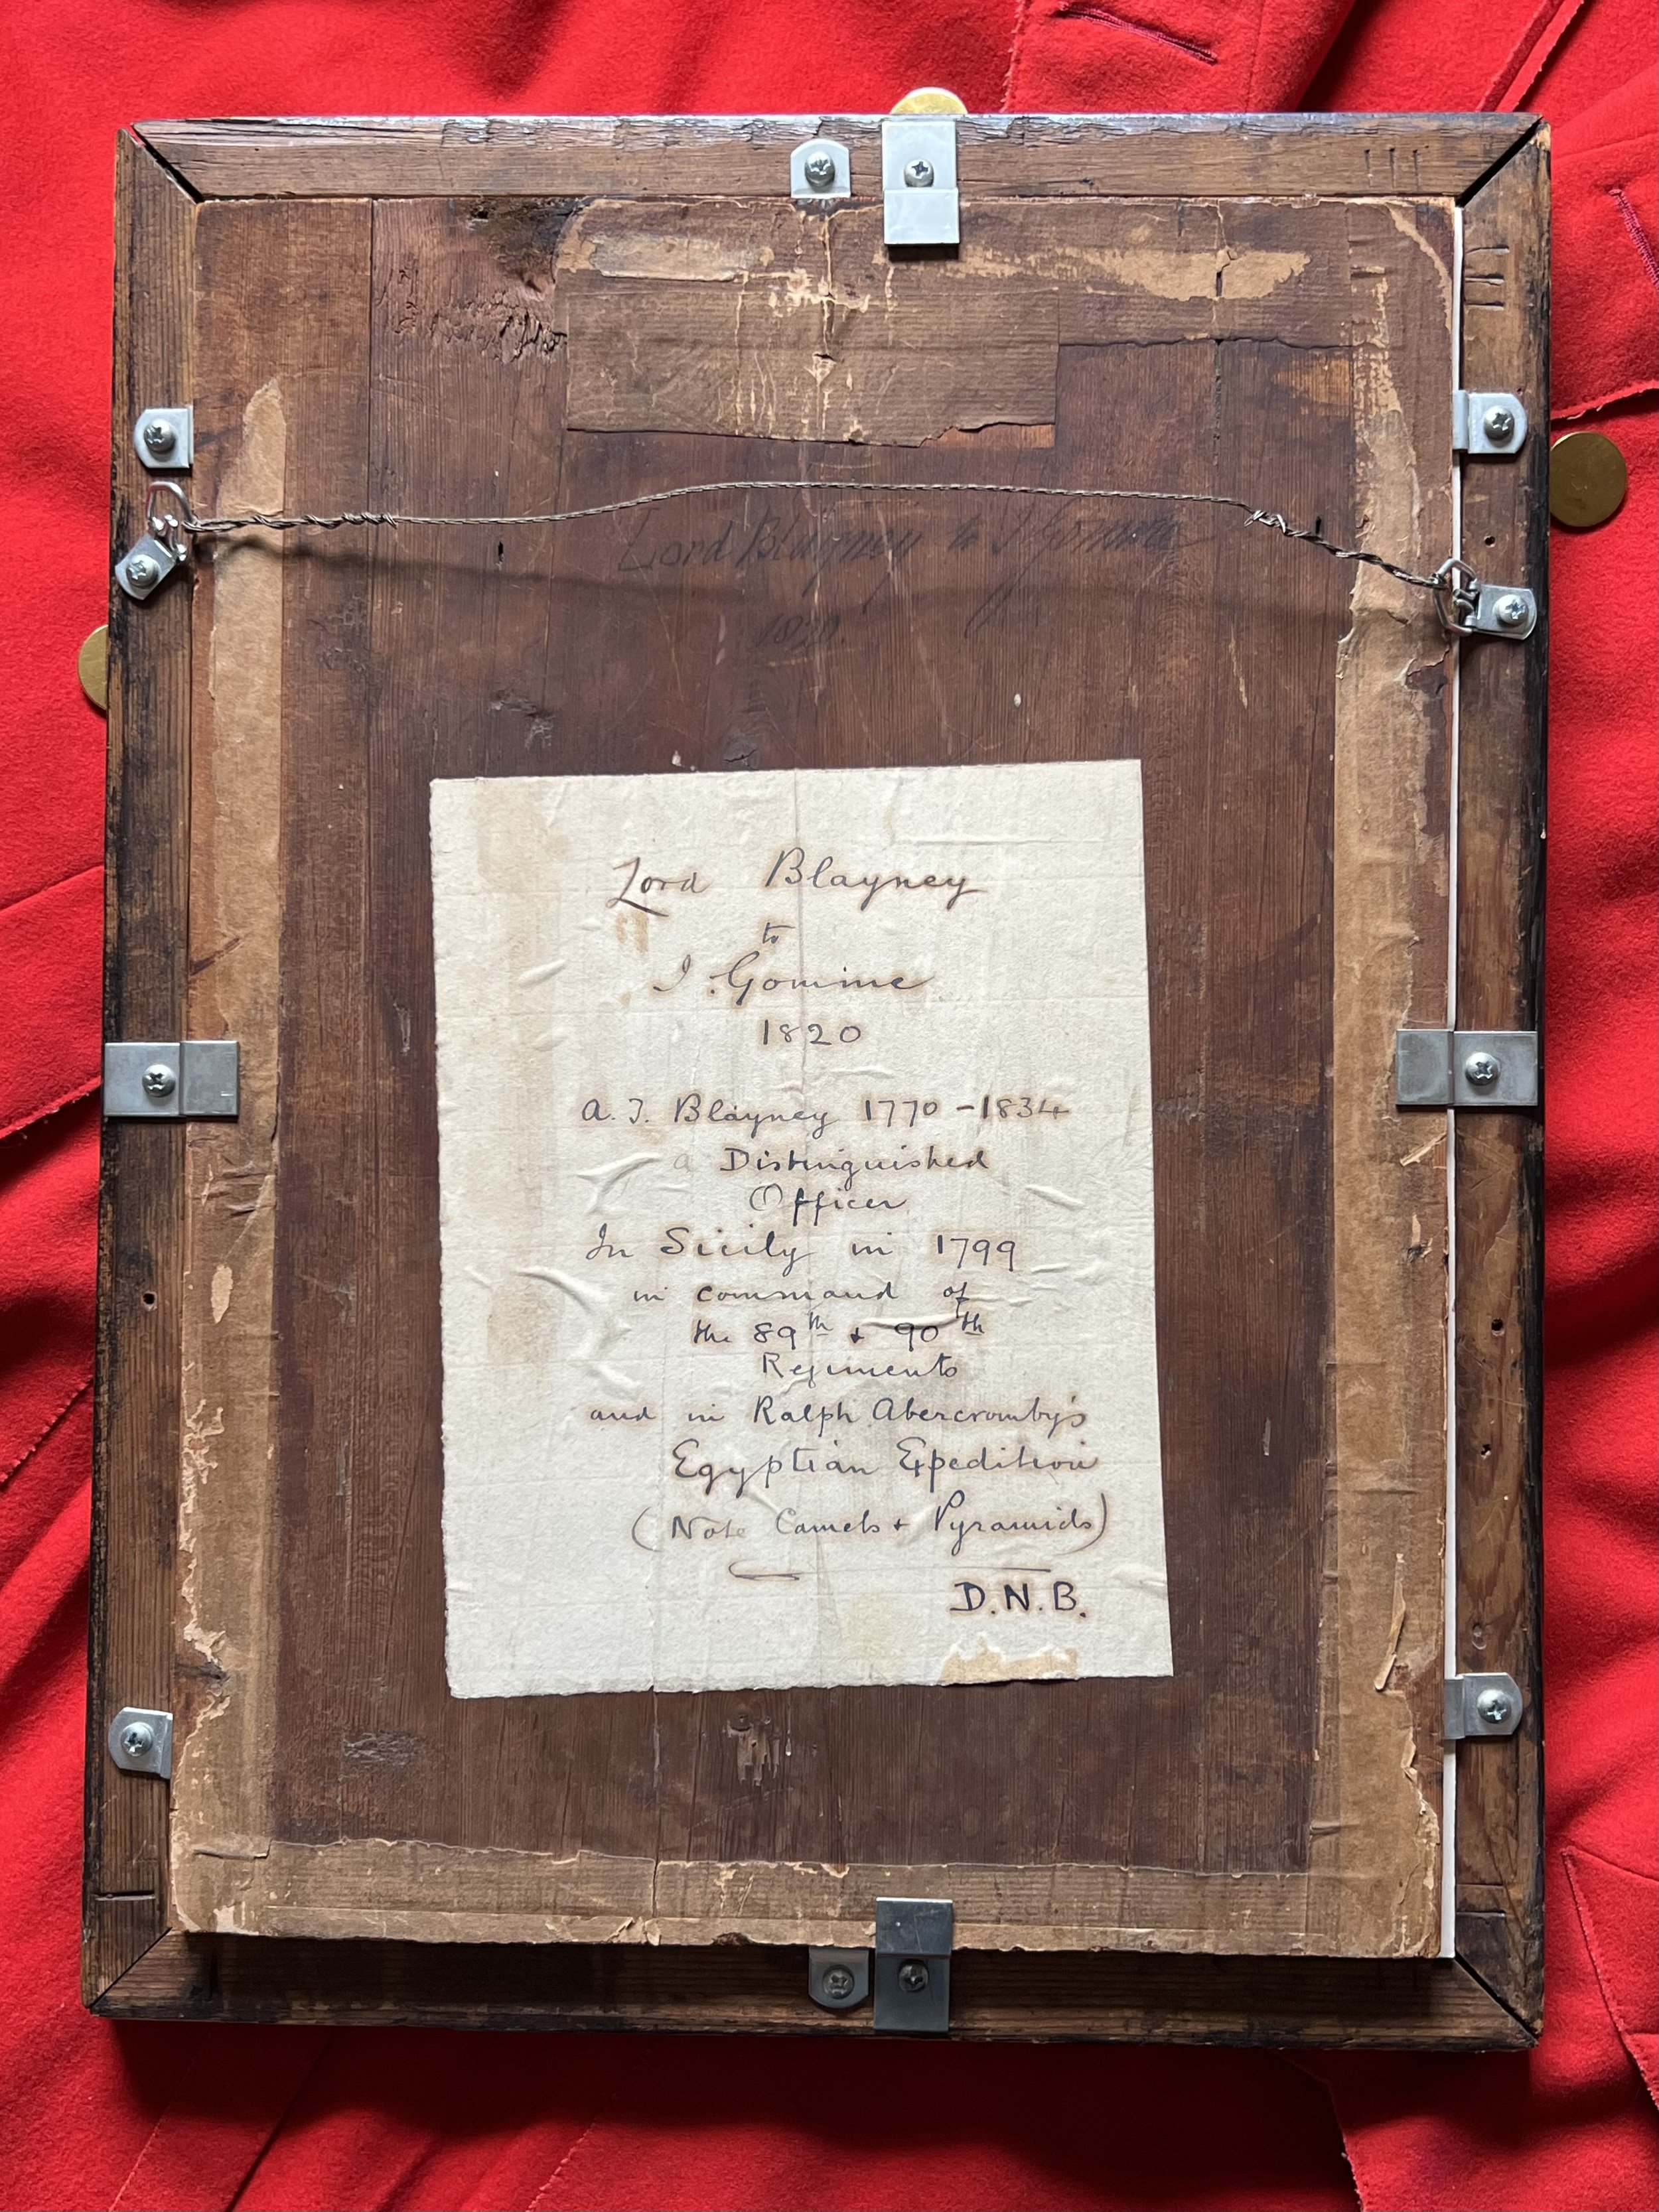 Lord Blayney to J Gomme
1820.
Lord Blayney
to
J. Gomme
1820
A. J. Blayney 1770 - 1834
a Distinguished
Officer
In Sicily in 1799
in command of
the 89th & 90th
Regiments
and in Ralph Abercromby's
Egyptian Expedition
(Note Camels & Pyramids)
D.N.B.